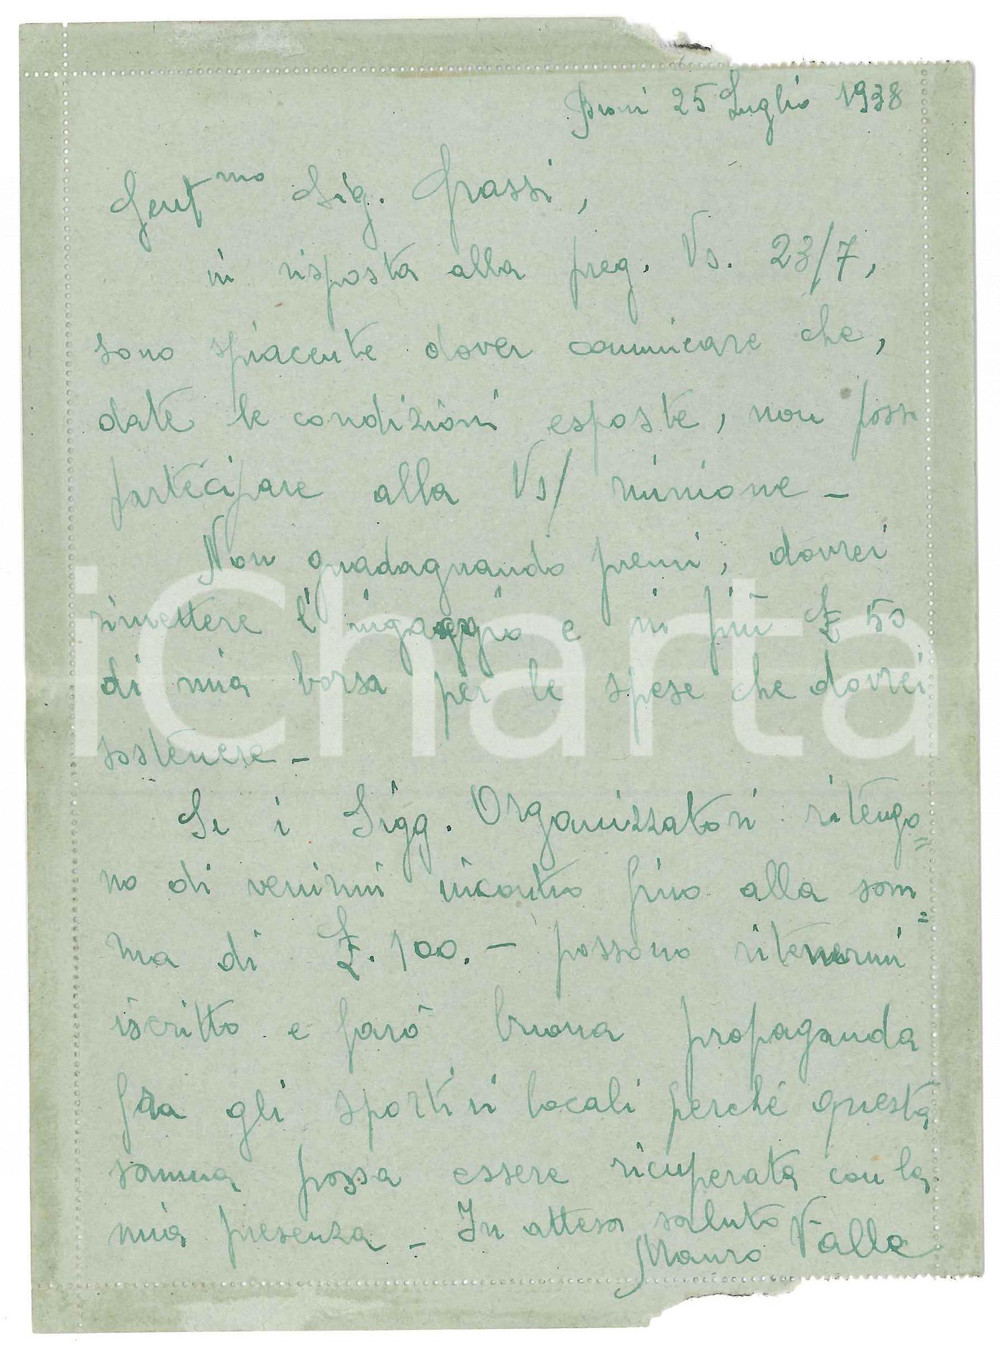 Broni 25 Luglio 1938
Gent.mo Sig. Grassi,
in risposta alla preg. Vs. 23/7,
sono spiacente dover comunicare che,
date le condizioni esposte, non posso
partecipare alla Vs/ riunione -
Non guadagnando premi, dovrei
rimettere l'ingaggio e in più £ 50
di mia borsa per le spese che dovrei
sostenere -
Se i Sigg. Organizzatori ritengo=
no di venirmi incontro fino alla som=
ma di £. 100. - possono ritenermi
iscritto e farò buona propaganda
fra gli sportivi locali perché questa
somma possa essere ricuperata con la
mia presenza - In attesa saluto
Mauro Valle
iCharta